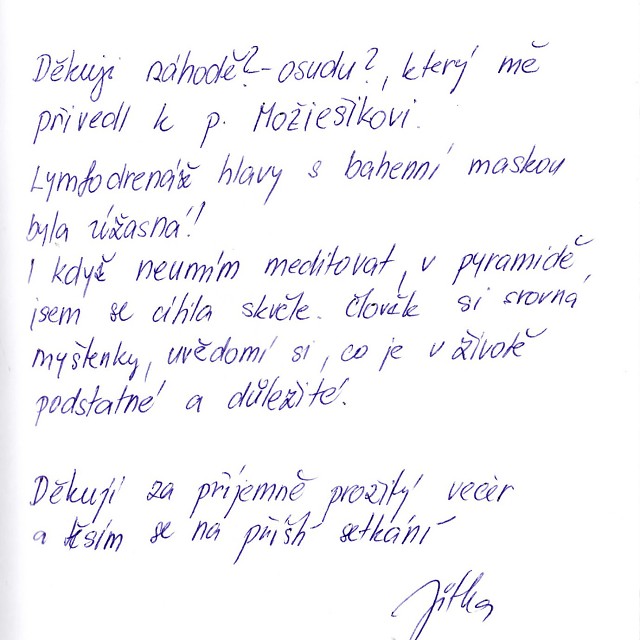 Děkuji náhodě?-osudu?, který mě
přivedl k p. Možiešíkovi.
Lymfodrenáž hlavy s bahenní maskou
byla úžasná!
I když neumím meditovat, v pyramidě,
jsem se cítila skvěle. Člověk si srovná
myšlenky, uvědomí si, co je v životě
podstatné a důležité.
Děkuji za příjemně prožitý večer
a těším se na příští setkání
Jitka